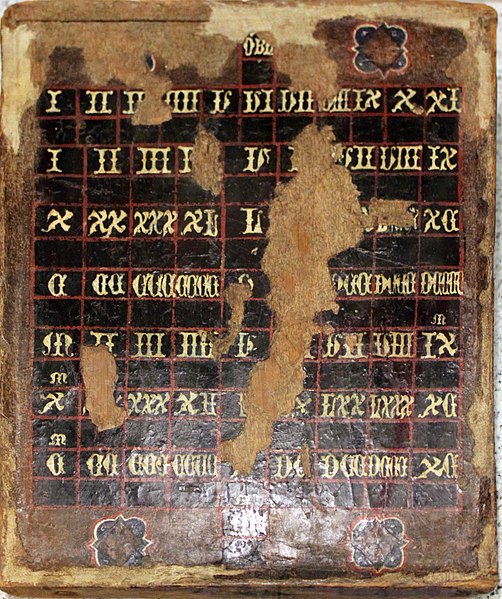 OBL
I II IIII V VI VII VIII IX X XI
I II III V VII VIII IX
X XX XXX XL L XC
C CC CCC CCCC DCC DCCC DCCCC
m
M II III IIII V VII VIII IX
m
X XXX XL LXX LXXX XC
m
C CC CCC CCCC DC DCC DCCC XC